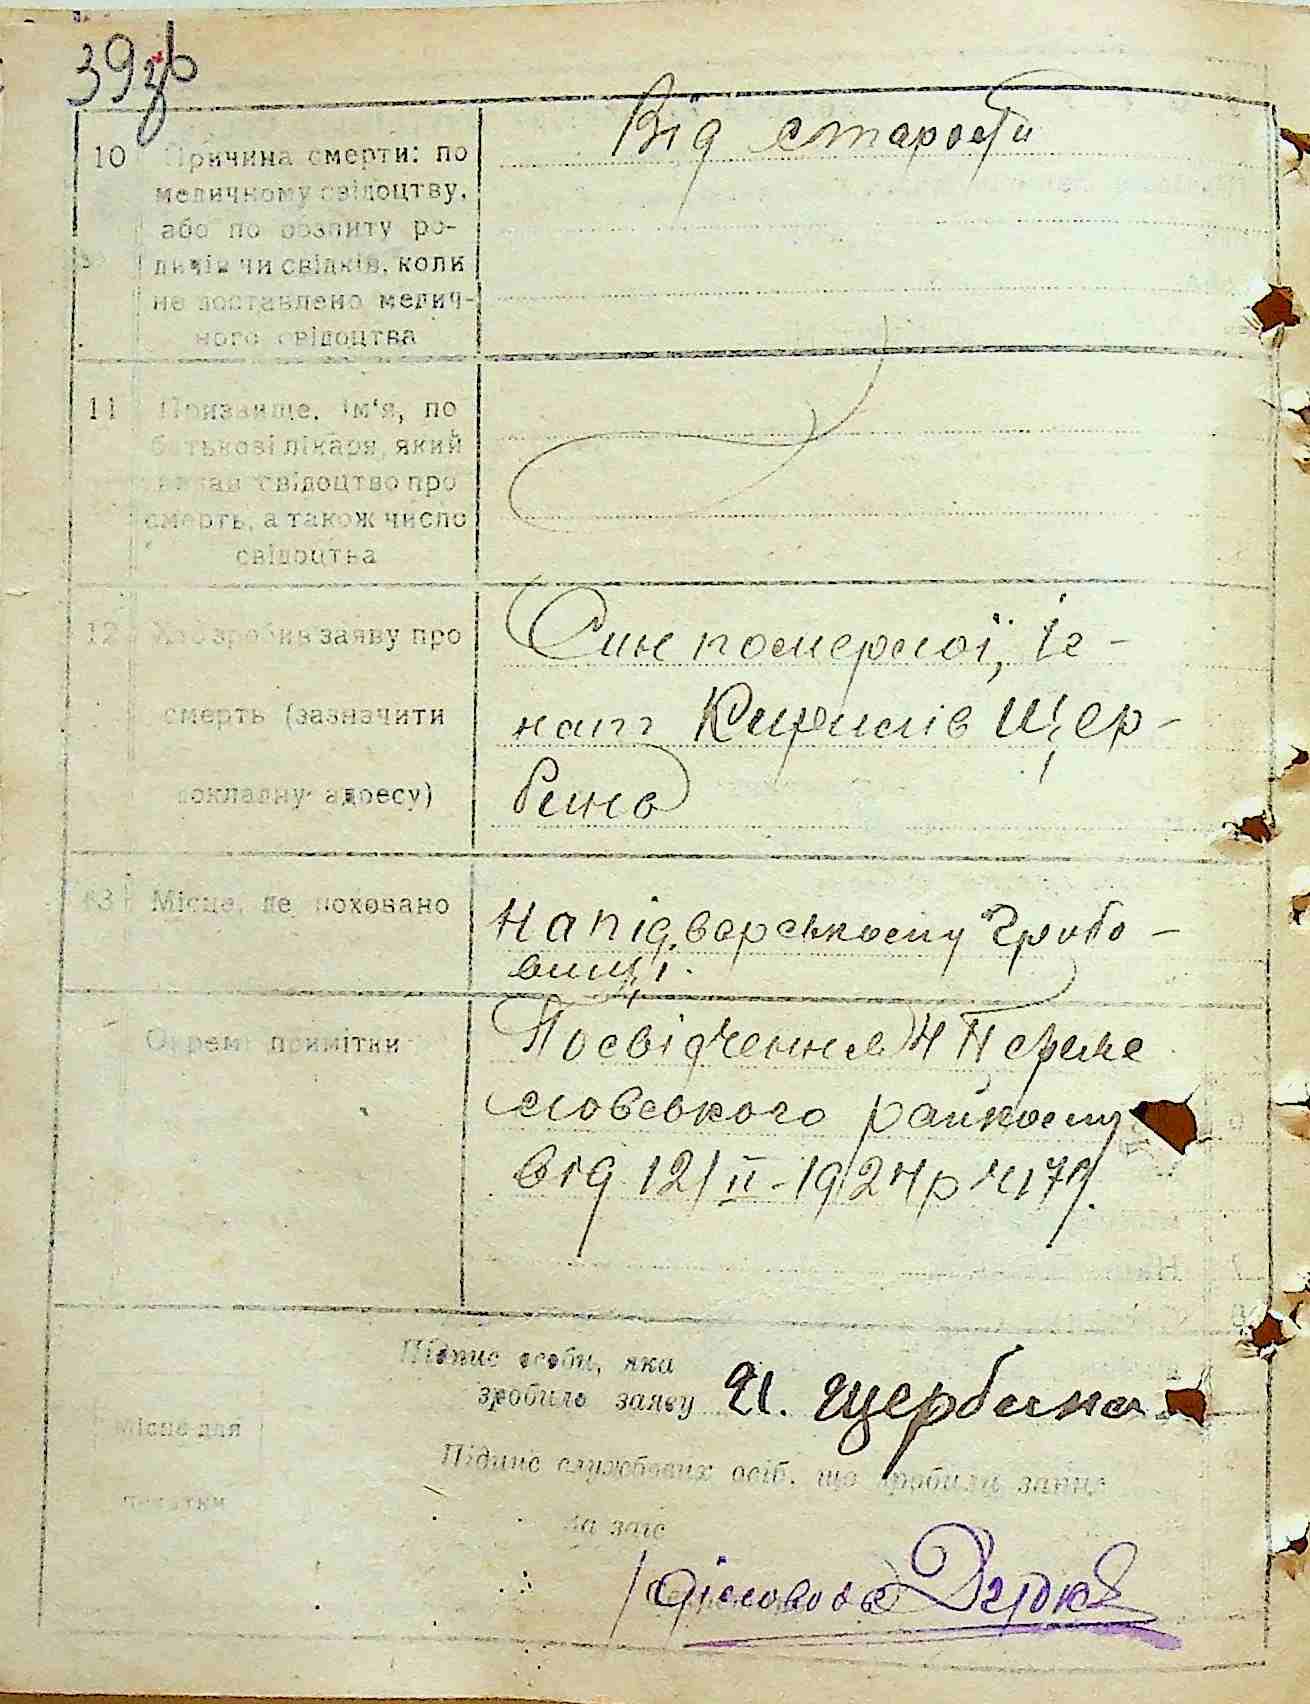 39зв
10 Причина смерти: по
медичному свідоцтву,
або по розпиту ро-
дичів чи свідків, коли
не доставлено медич-
ного свідоцтва
Від старости
11 Призвище, ім'я, по
батькові лікаря, який
видав свідоцтво про
смерть, а також число
свідоцтва
12 Хто зробив заяву про
смерть (зазначити
докладну адресу)
Син померлої, Іг-
нат Кирилів Щер-
бина
13 Місце, де поховано
На підварському гробо-
вищі.
Окремі примітки
Посвідчення
словського райкому
від 12/II-1924р №179.
Підпис особи, яка
зробила заяву И. Щербина
Місце для
печатки
Підпис службових осіб, що зробили запис
за загс
діловода